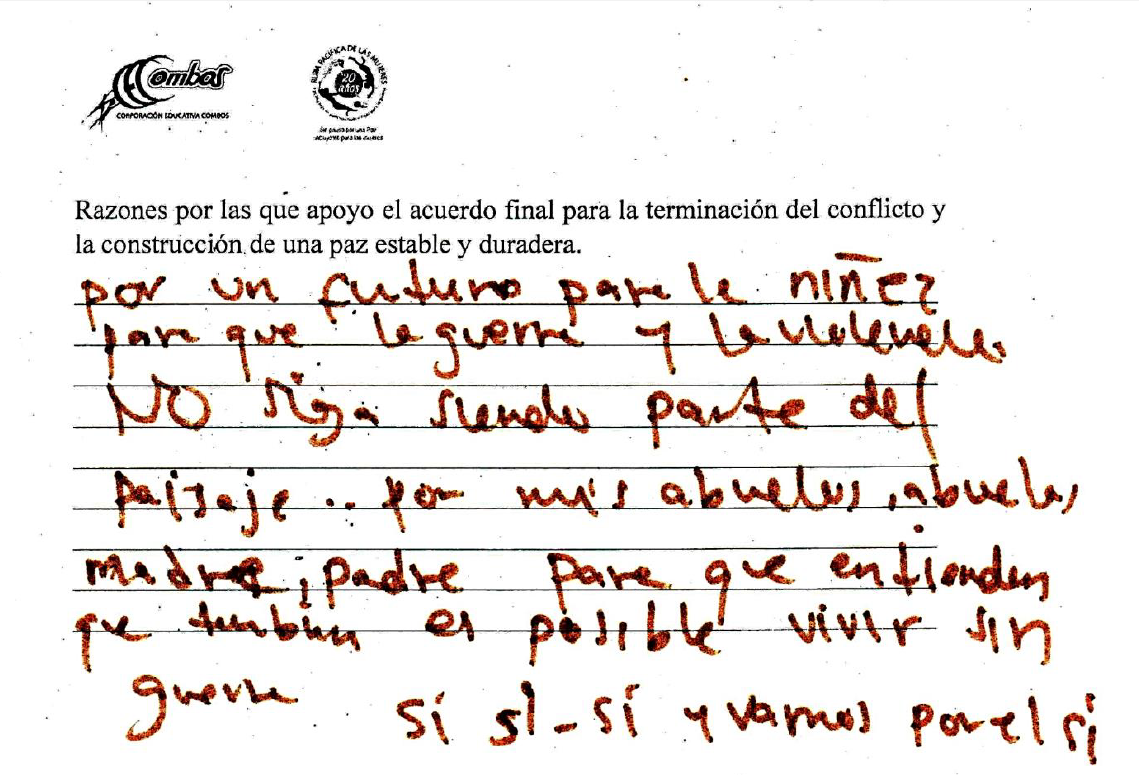 Combos
CORPORACIÓN EDUCATIVA COMBOS
RUTA PACIFICA DE LAS MUJERES
20
años
Razones por las que apoyo el acuerdo final para la terminación del conflicto y
la construcción de una paz estable y duradera.
por un futuro para la niñez
para que la guerra y la violencia
NO siga siendo parte del
paisaje .. por mis abuelos, abuelas
madre, padre para que entiendan
que tambien es posible vivir sin
guerra sí sí - sí y vamos por el si